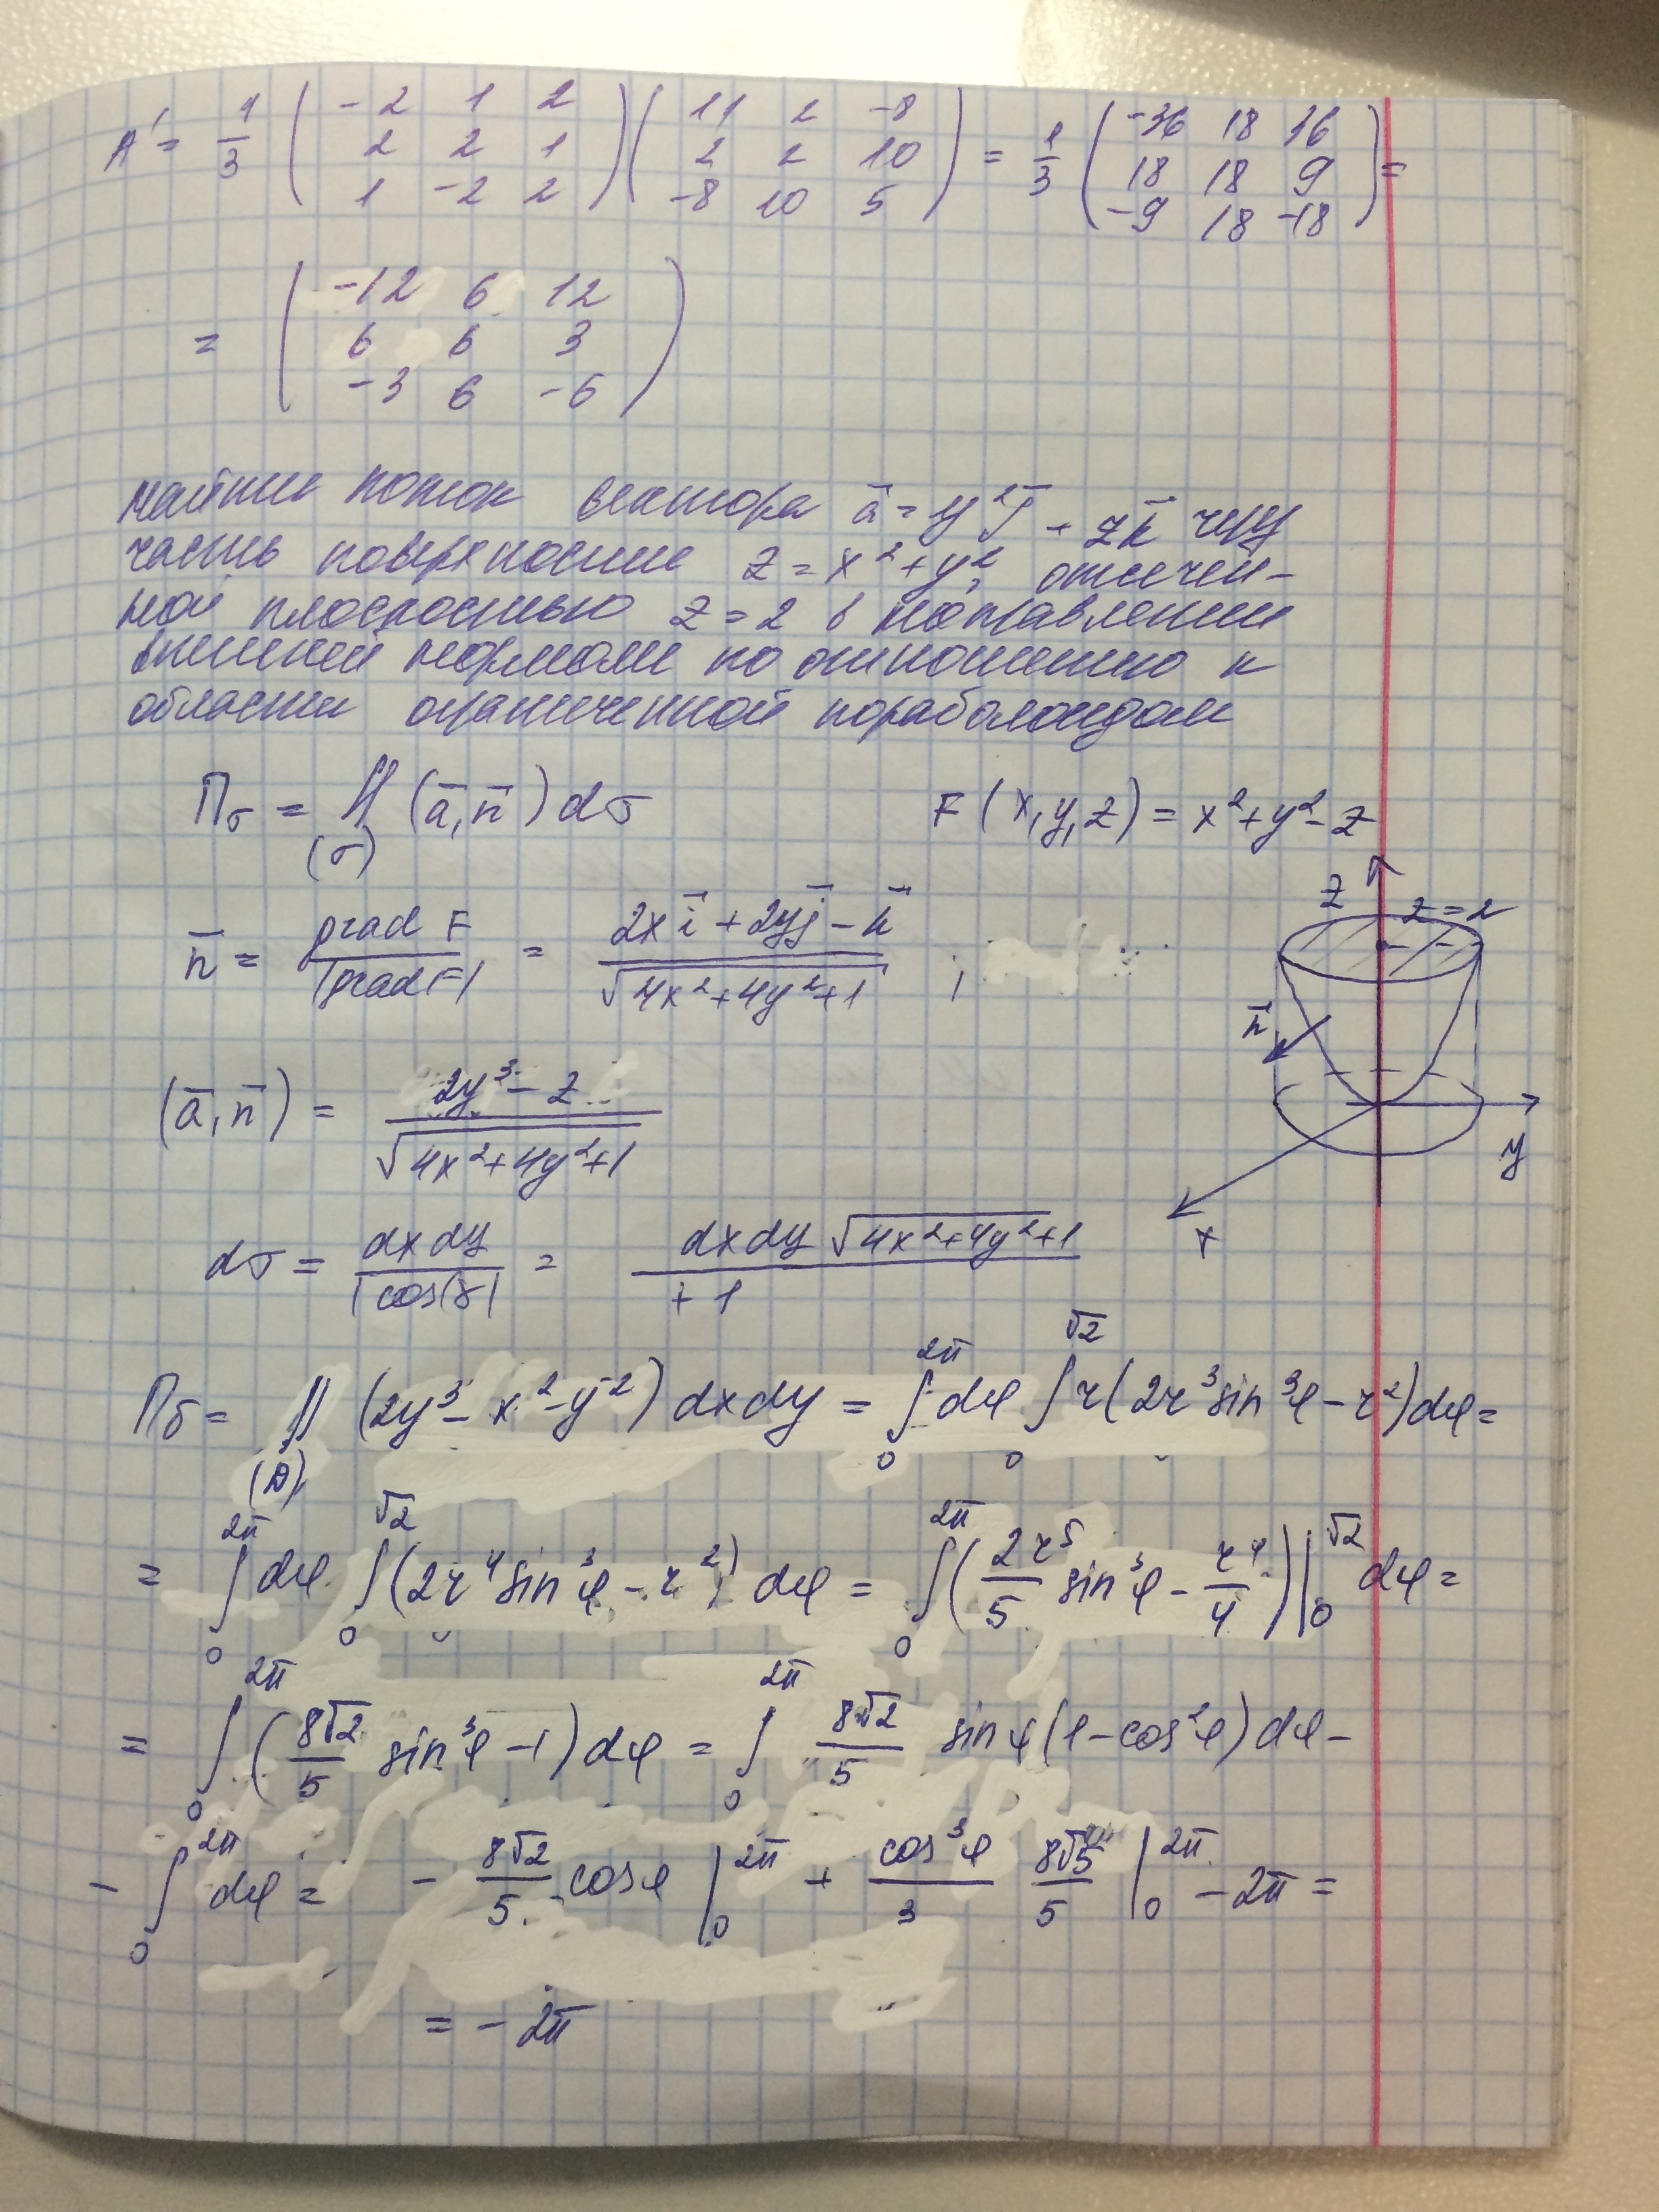 A' = 1/3 ( -2 1 2 ; 2 2 1 ; 1 -2 2 ) ( 11 2 -8 ; 2 2 10 ; -8 10 5 ) = 1/3 ( -36 18 36 ; 18 18 9 ; -9 18 -18 ) =
= ( -12 6 12 ; 6 6 3 ; -3 6 -6 )
Найти поток вектора ā = y² j̄ + z k̄ через
часть поверхности z = x² + y², отсечен-
ной плоскостью z = 2 в направлении
внешней нормали по отношению к
области ограниченной пораболоидом
Пσ = ∬(σ) (ā, n̄) dσ F(x, y, z) = x² + y² - z
n̄ = grad F / |grad F| = (2x ī + 2y j̄ - k̄) / √(4x² + 4y² + 1) ;
z z = 2
n̄
(ā, n̄) = (2y³ - z) / √(4x² + 4y² + 1)
y
x
dσ = dxdy / |cos γ| = dxdy √(4x² + 4y² + 1) / + 1
Пσ = ∬(D) (2y³ - x² - y²) dxdy = ∫₀^2π dφ ∫₀^√2 r(2r³ sin³φ - r²) dφ =
= ∫₀^2π dφ ∫₀^√2 (2r⁴ sin³φ - r²) dφ = ∫₀^2π (2r⁵/5 sin³φ - r⁴/4) |₀^√2 dφ =
= ∫₀^2π (8√2/5 sin³φ - 1) dφ = ∫₀^2π 8√2/5 sin φ (1 - cos²φ) dφ -
- ∫₀^2π dφ = - 8√2/5 cos φ |₀^2π + cos³φ/3 8√5/5 |₀^2π - 2π =
= - 2π